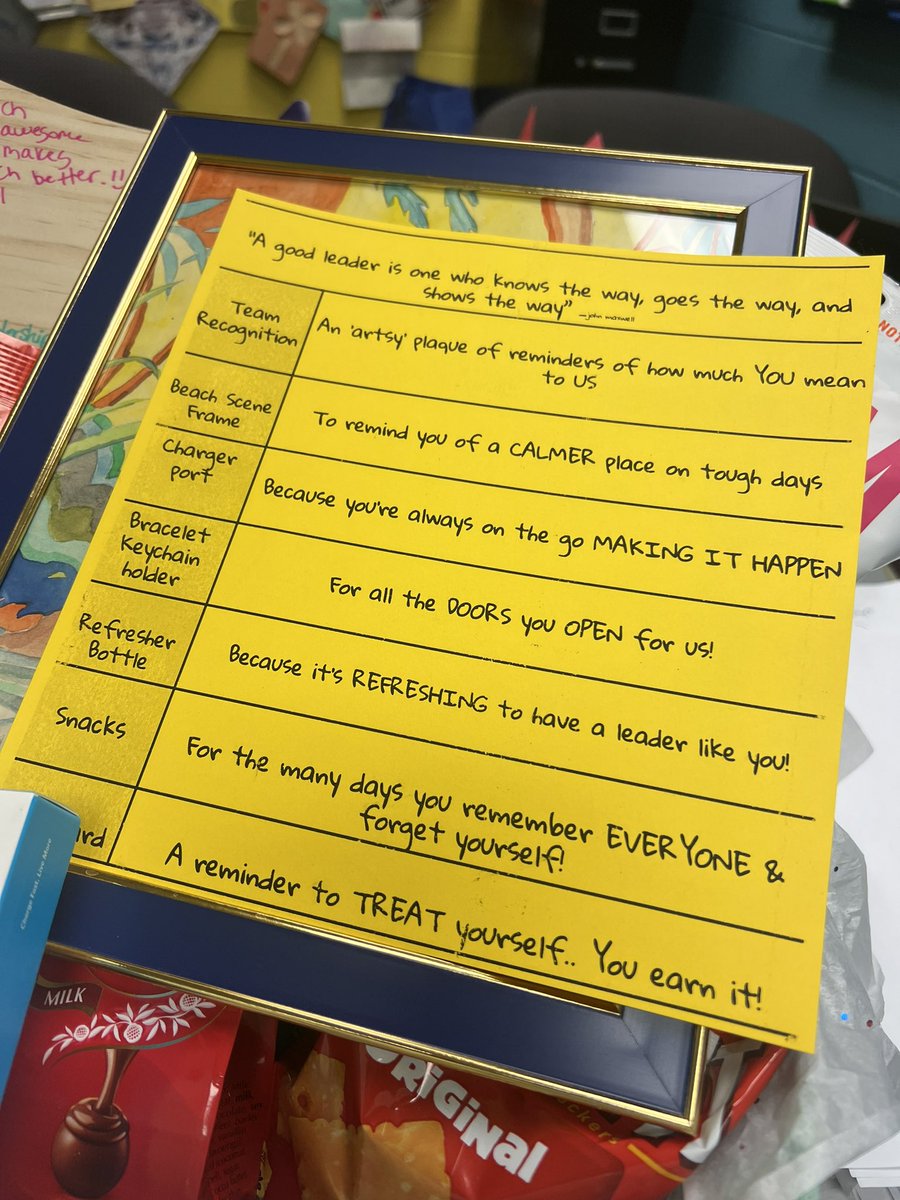 ch
awesome
makes
ch better.!!
"A good leader is one who knows the way, goes the way, and
shows the way" -john maxwell
Team
Recognition
An 'artsy' plaque of reminders of how much YOU mean
to US
Beach Scene
Frame
To remind you of a CALMER place on tough days
Charger
port
Because you're always on the go MAKING IT HAPPEN
Bracelet
Keychain
holder
For all the DOORS you OPEN for us!
Refresher
Bottle
Because it's REFRESHING to have a leader like you!
Snacks
For the many days you remember EVERYONE &
forget yourself!
ard
A reminder to TREAT yourself.. You earn it!
Charge Fast. Live More
MILK
ORIGINAL